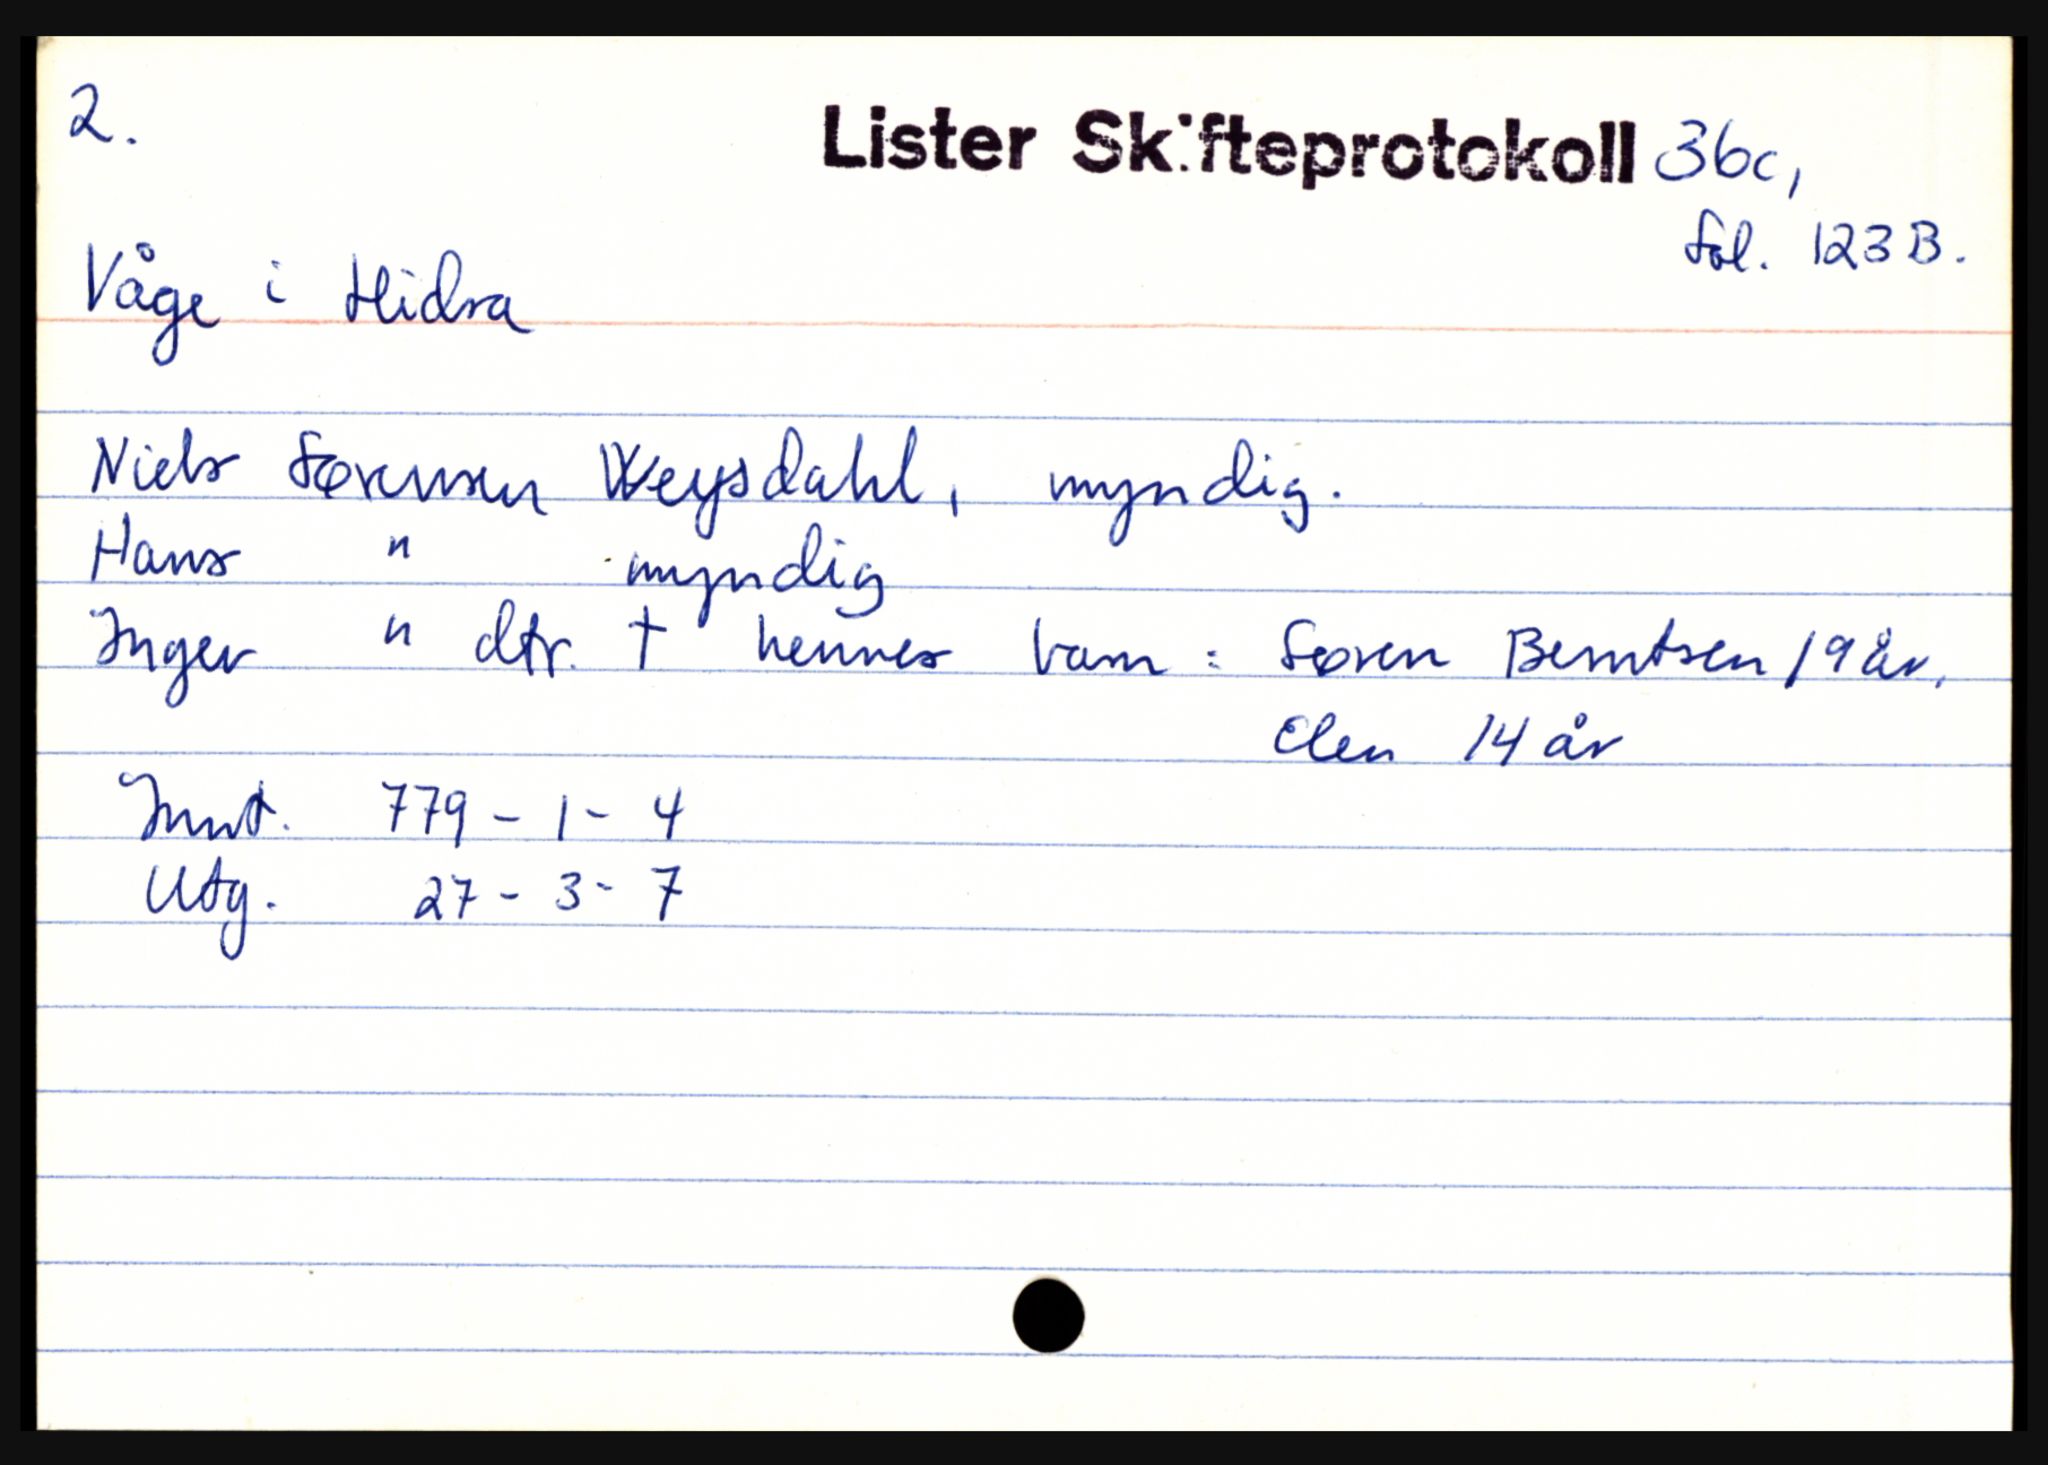 2.
Lister Skifteprotokoll 36c,
fol. 123B.
Våge i Hidra
Niels Sørensen Weysdahl, myndig.
Hans " myndig
Inger " dtr. † hennes barn : Søren Berntsen 19 år,
Elen 14 år
Innt. 779 - 1 - 4
Utg. 27 - 3 - 7